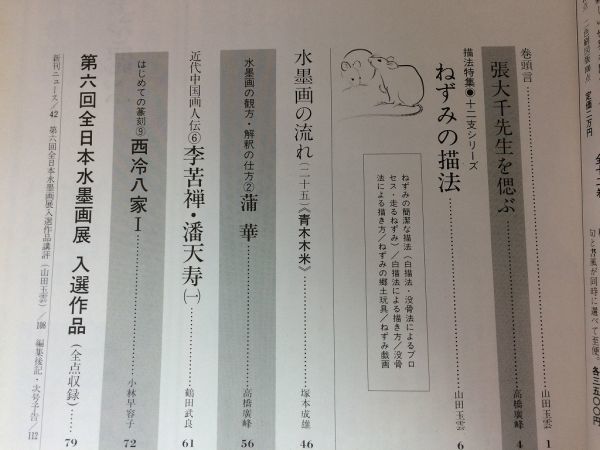 巻頭言……山田玉雲 1
張大千先生を偲ぶ……高橋廣峰 4
描法特集●十二支シリーズ
ねずみの描法……山田玉雲 6
ねずみの簡潔な描法(白描法・没骨法によるプロ
セス・走るねずみ)/白描法による描き方/没骨
法による描き方/ねずみの郷土玩具/ねずみ戯画
水墨画の流れ(二十五)《青木木米》……塚本成雄 46
水墨画の観方・解釈の仕方② 蒲華……高橋廣峰 56
近代中国画人伝⑥ 李苦禅・潘天寿(一)……鶴田武良 61
はじめての篆刻⑨ 西冷八家Ⅰ……小林早容子 72
第六回全日本水墨画展 入選作品(全点収録)……79
新刊ニュース/42 第六回全日本水墨画展入選作品講評(山田玉雲)/108 編集後記・次号予告/112
定価二万円
句と書風が同時に選べて至便。各三五〇〇円